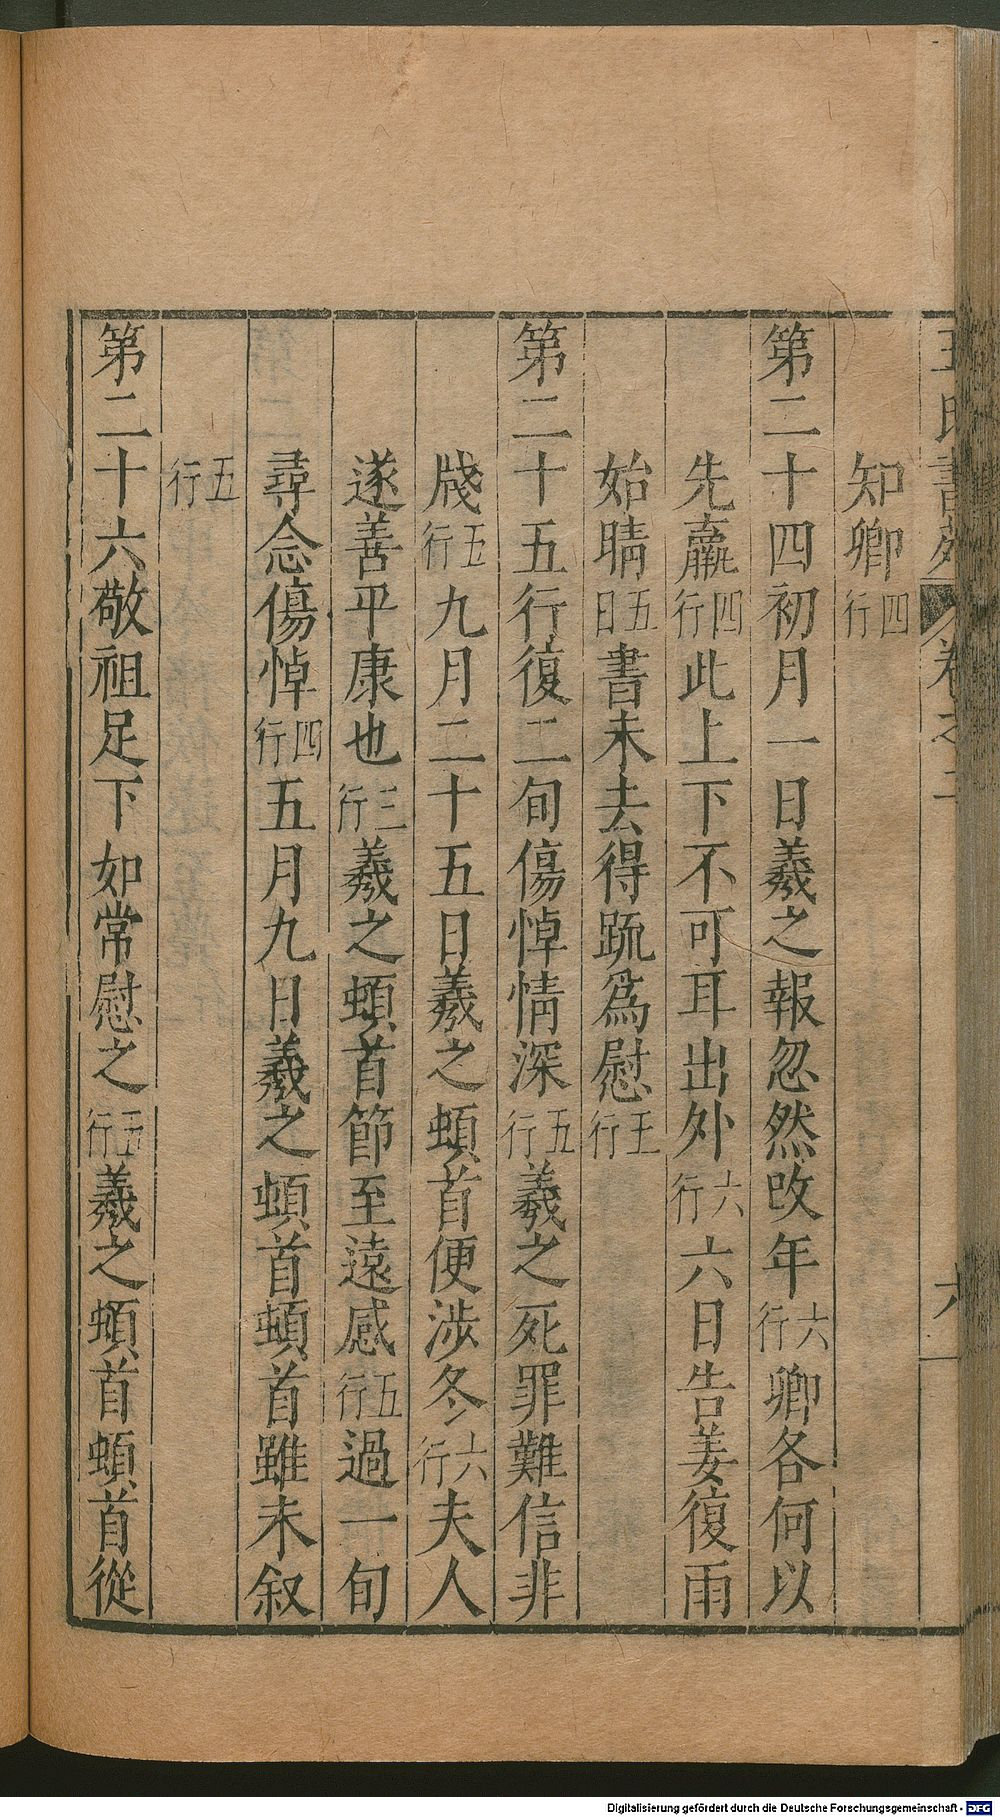 知卿四行
第二十四初月一日羲之報忽然改年六行卿各何以
先羸四行此上下不可耳出外六行六日告姜復雨
始晴五日書未去得䟽爲慰王行
第二十五行復二旬傷悼情深五行羲之死罪難信非
牋五行九月二十五日羲之頓首便涉冬六行夫人
遂善平康也三行羲之頓首節至遠感五行過一旬
尋念傷悼四行五月九日羲之頓首頓首雖未叙
五行
第二十六敬祖足下如常慰之五行羲之頓首頓首從
王氏書苑 卷之二
六
Digitalisierung gefördert durch die Deutsche Forschungsgemeinschaft - DFG